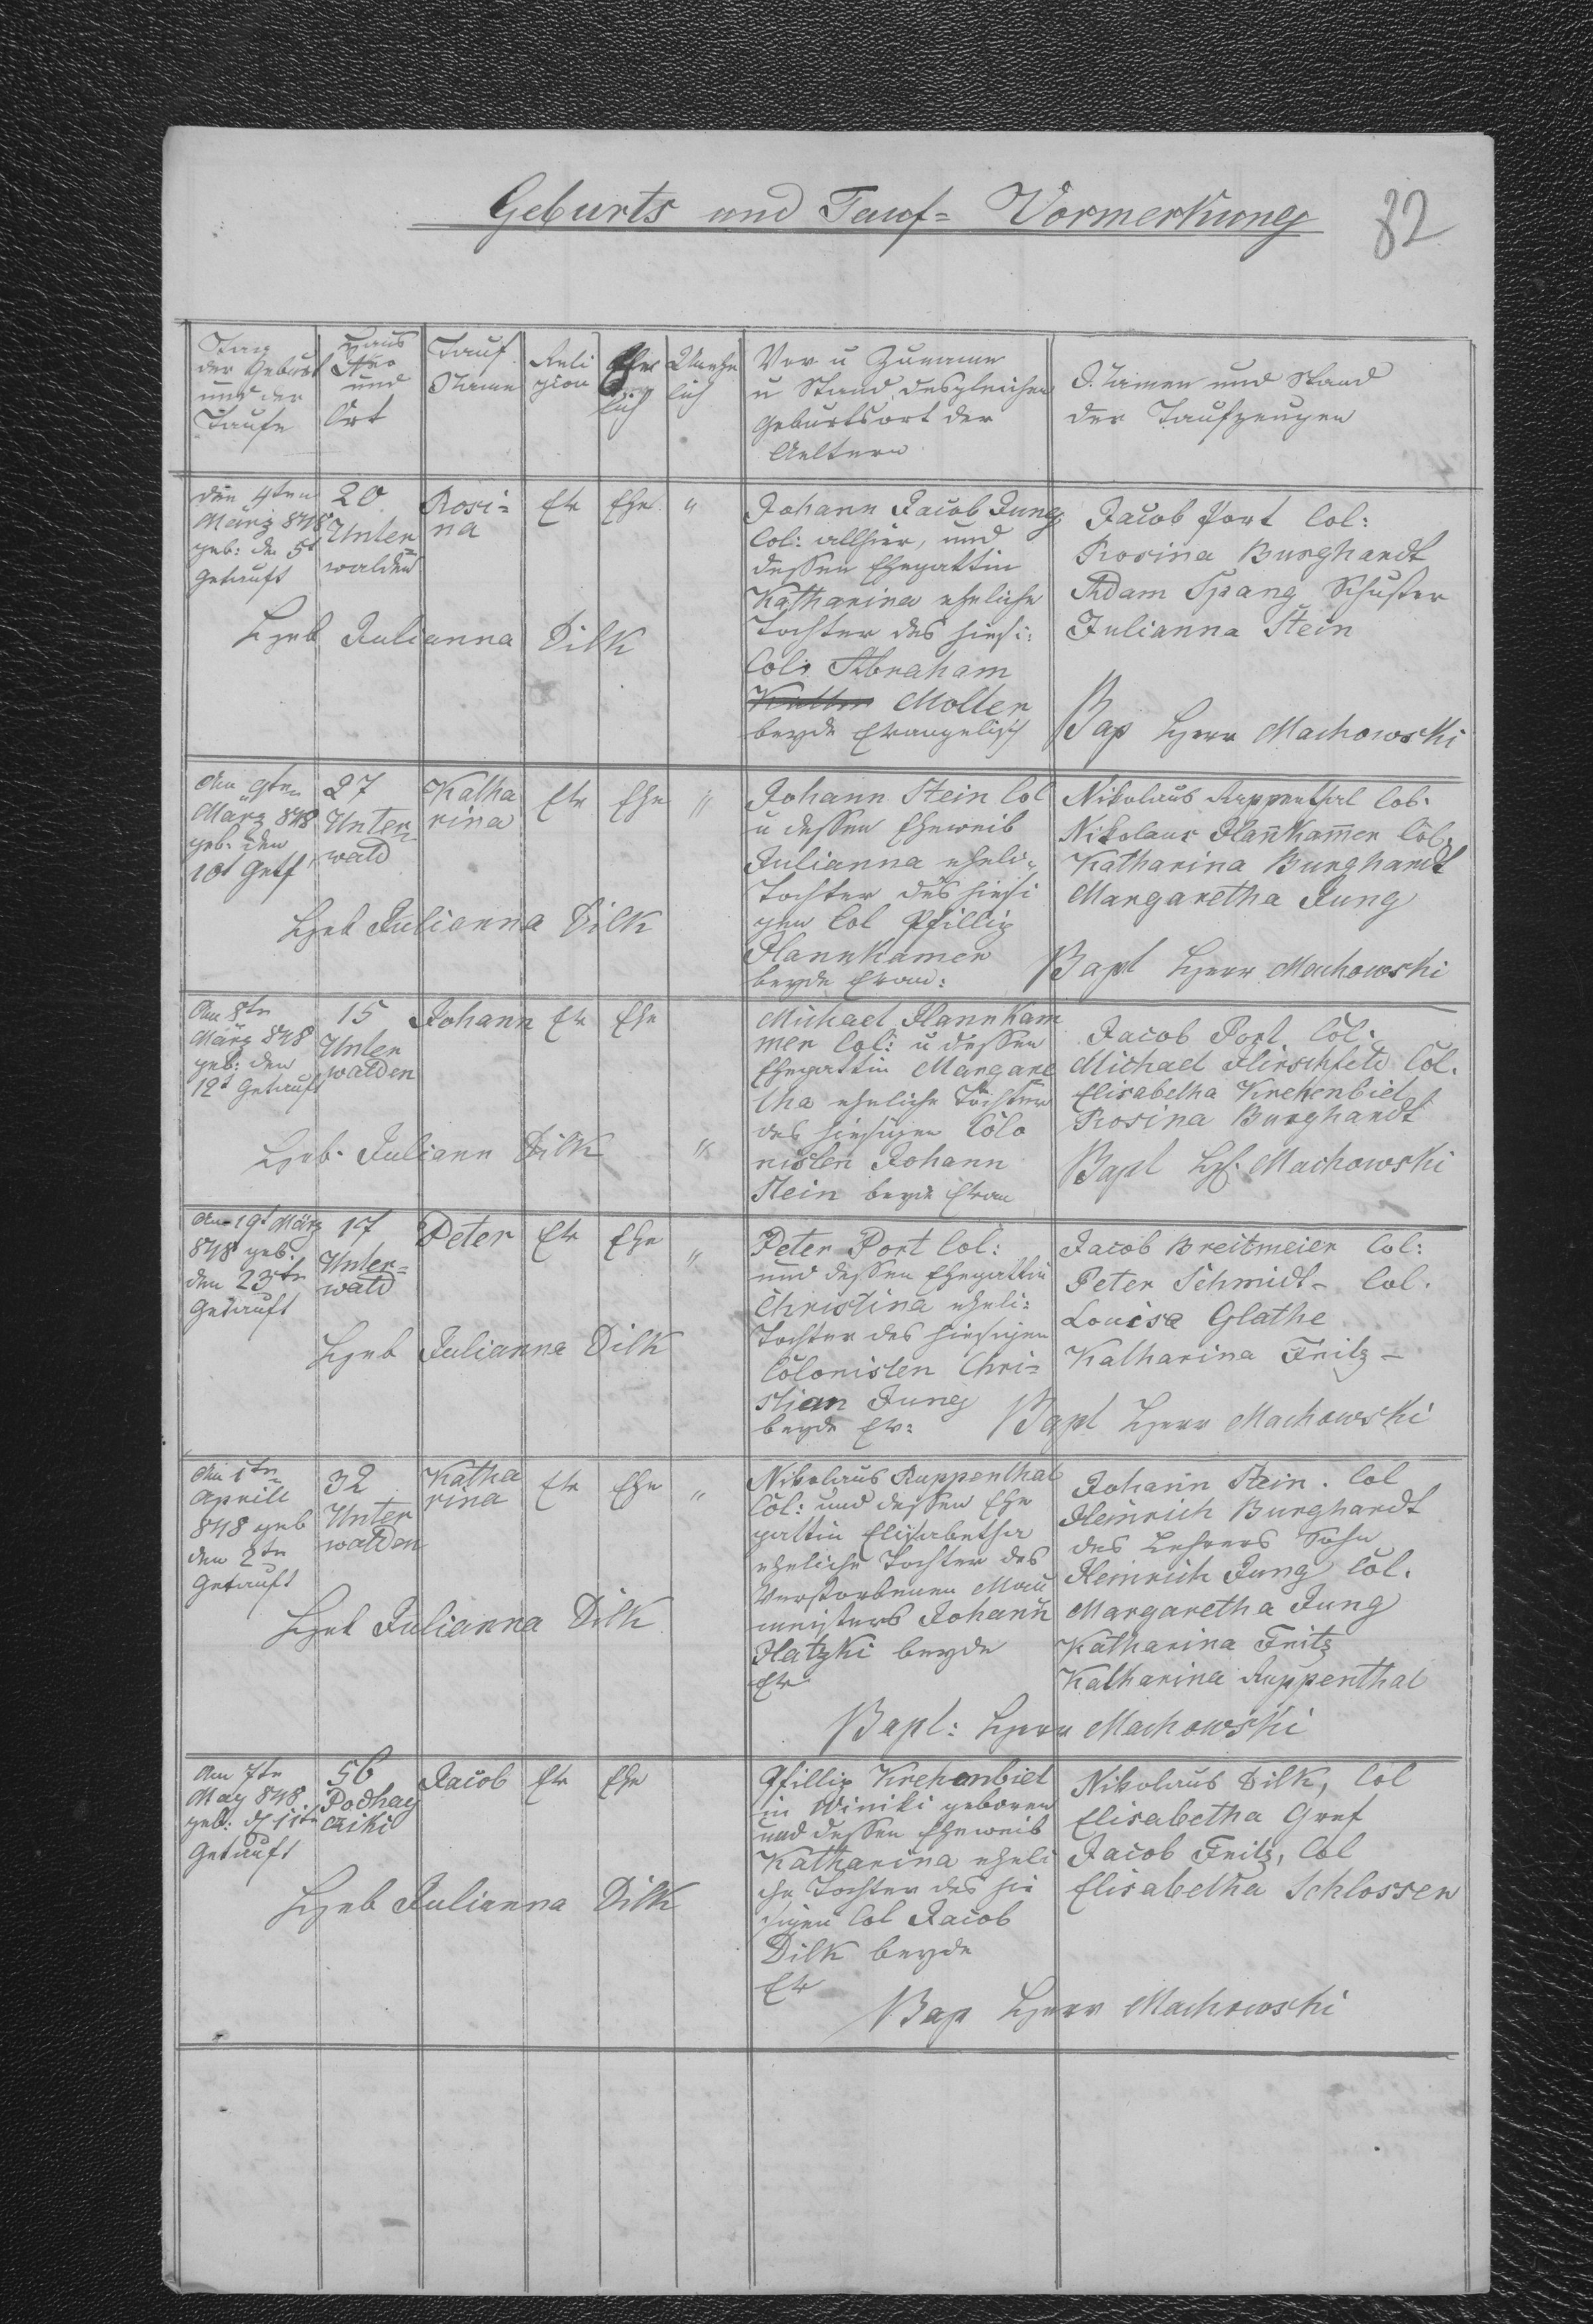 Geburts und Tauf= Vormerkung
82
Tag
der Geburt
und der
Taufe
Haus
Nro
und
Ort
Tauf
Name
Reli
gion
Ehe
lich
Unehe
lich
Vor u Zuname
u Stand, desgleichen
Geburtsort der
Aeltern
Namen und Stand
der Taufzeugen
den 4ten
März 848
geb: den 5t
Getauft
20
Unter=
walden
Rosi=
na
Ev
Ehe
"
Johann Jacob Jung
Col: allhier, und
dessen Ehegattin
Katharina eheliche
Tochter des hiesi:
Col: Abraham
Moller
beyde Evangelisch
Jacob Port Col:
Rosina Burghardt
Adam Spang Schuster
Julianna Stein
Heb Julianna Dilk
Bap Herr Machowski
Am 9ten
März 848
geb: den
10t Getf
27
Unter=
wald
Katha
rina
Ev
Ehe
"
Johann Stein Col
u dessen Eheweib
Julianna eheli:
Tochter des hiesi
gen Col Pfillip
Hannkamer
beyde Evan:
Nikolaus Ruppenthal Col.
Nikolaus Han̄kam̄er Col.
Katharina Burghardt
Margaretha Jung
Heb Julianna Dilk
Bapt Herr Machowski
Am 8tn
März 848
geb: den
12t Getauft
15
Unter
walden
Johann
Ev
Ehe
"
Michael Hannkam
mer Col: u dessen
Ehegattin Margare
tha eheliche Tochter
des hiesigen Colo
nisten Johann
Stein beyde Evan
Jacob Port Col.
Michael Hirschfeld Col.
Elisabetha Krehenbiel
Rosina Burghardt
Heb. Juliann Dilk
Bapt H. Machowski
Am 19t März
848 geb.
den 23tn
Getauft
17
Unter=
wald
Peter
Ev
Ehe
"
Peter Port Col:
und dessen Ehegattin
Christina eheli:
Tochter des hiesigen
Colonisten Chri=
stian Jung
beyde Ev:
Jacob Breitmeier Col:
Peter Schmidt- Col.
Louisa Glathe
Katharina Fritz -
Heb Julianna Dilk
Bapt Herr Machowski
Am 1tn
Aprill
848 geb
den 2tn
Getauft
32
Unter
walden
Katha
rina
Ev
Ehe
"
Nikolaus Ruppenthal
Col: und dessen Ehe
gattin Elisabetha
eheliche Tochter des
Verstorbenen Mau
meisters Johann
Hatzki beyde
Ev
Johann Stein. Col
Heinrich Burghardt
des Lehrers Sohn
Heinrich Jung Col.
Margaretha Jung
Katharina Fritz
Katharina Ruppenthal
Heb Julianna Dilk
Bapt: Herr Machowski
Am 7tn
May 848
geb: d 11tn
Getauft
56
Podhay
caiki
Jacob
Ev
Ehe
Pfillip Krehenbiel
in Winiki geboren
und dessen Eheweib
Katharina eheli
che Tochter des hie
sigen Col Jacob
Dilk beyde
Ev
Nikolaus Dilk, Col
Elisabetha Gref
Jacob Fritz, Col
Elisabetha Schlosser
Heb Julianna Dilk
Bap Herr Machowski